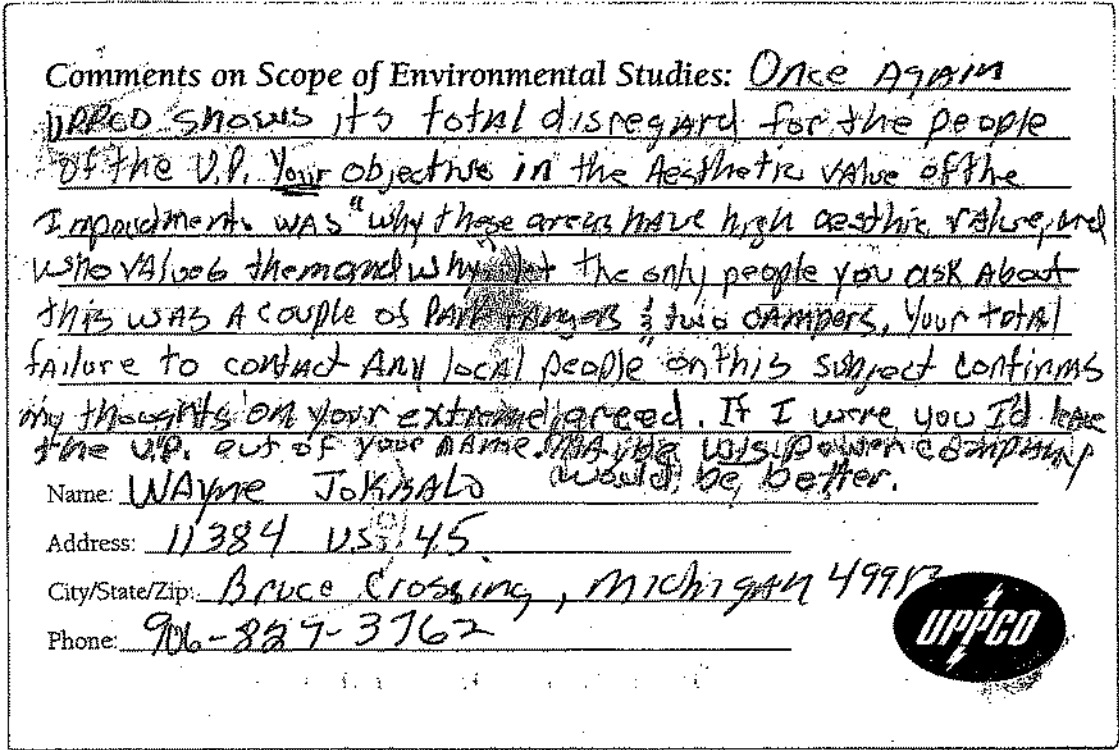 Comments on Scope of Environmental Studies: Once Again
UPPCO shows its total disregard for the people
of the U.P. Your objective in the Aesthetic value of the
Impoudments was "why these areas have high aesthic value, and
who values them and why" yet the only people you ask About
this was A couple of Park rangers & two campers. Your total
failure to contact Any "local people" on this subject confirms
my thoughts on your extreme greed. If I were you I'd leave
the U.P. out of your name. Maybe Wis. power company
would be better.
Name: Wayne
Address: 11384 U.S. 45
City/State/Zip: Bruce Crossing, Michigan
Phone: 906-827-3762
UPPCO